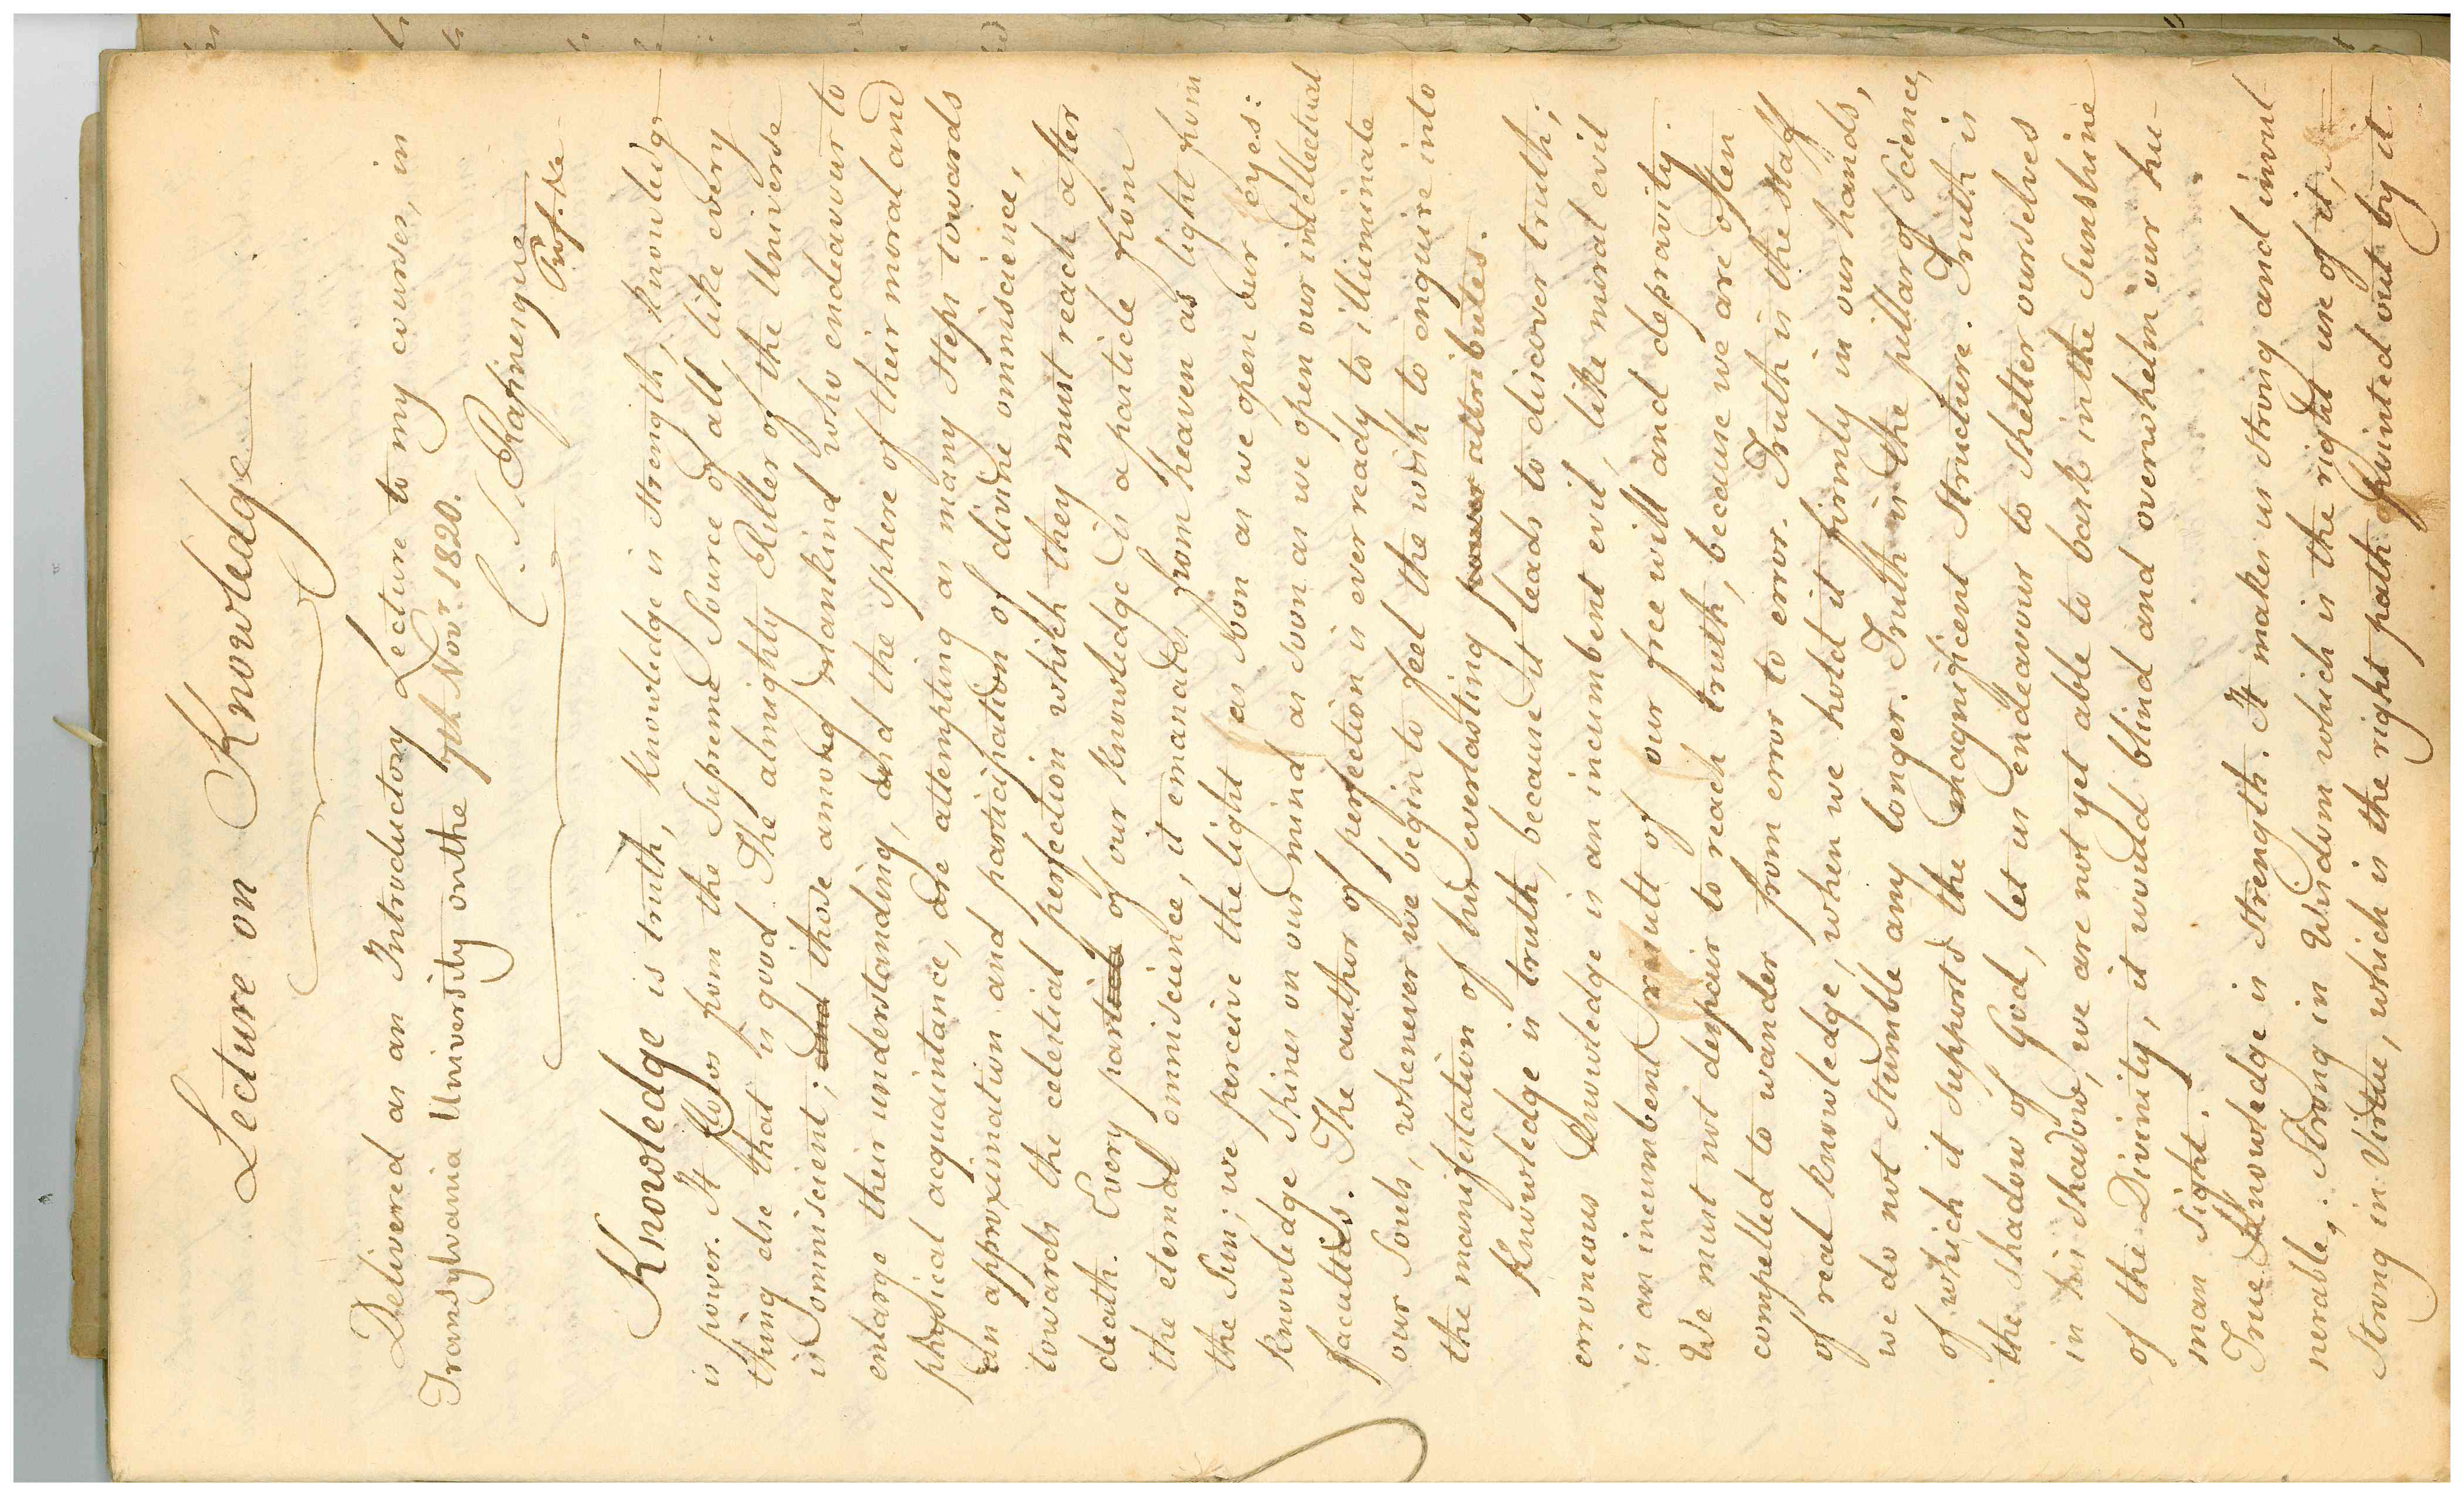 Lecture on Knowledge
Delivered as an Introductory Lecture to my courses, in
Transylvania University on the 7th Novr. 1820.
C. S. Rafinesque
Prof. &a
Knowledge is truth, knowledge is strength, knowledge
is power. It flows from the Supreme Source of all, like every
thing else that is good. The almighty Ruller of the Universe
is omniscient; and those among mankind who endeavour to
enlarge their understanding, and the sphere of their moral and
physical acquaintance, are attempting as many steps towards
an approximation and participation of divine omniscience,
towards the celestial perfection which they must reach after
death. Every particle of our knowledge is a particle from
the eternal omniscience, it emanates from heaven as light from
the Sun; we perceive the light as soon as we open our eyes:
knowledge shines on our mind as soon as we open our intellectual
faculties. The author of perfection is ever ready to illuminate
our Souls, whenever we begin to feel the wish to enquire into
the manifestation of his everlasting power attributes.
Knowledge is truth, because it leads to discover truth;
erroneous Knowledge is an incumbent evil, like moral evil
is an incumbent result of our free will and depravity.
We must not despair to reach truth, because we are often
compelled to wander from error to error. Truth is the staff
of real knowledge, when we hold it firmly in our hands,
we do not stumble any longer. Truth is the pillar of Science,
of which it supports the magnificent structure. Truth is
the shadow of God, let us endeavour to shelter ourselves
in his shadow, we are not yet able to bask in the Sunshine
of the Divinity, it would blind and overwhelm our hu-
man sight.
True Knowledge is strength. It makes us strong and invul-
nerable: Strong in Wisdom which is the right use of it,
Strong in Virtue, which is the right path pointed out by it.